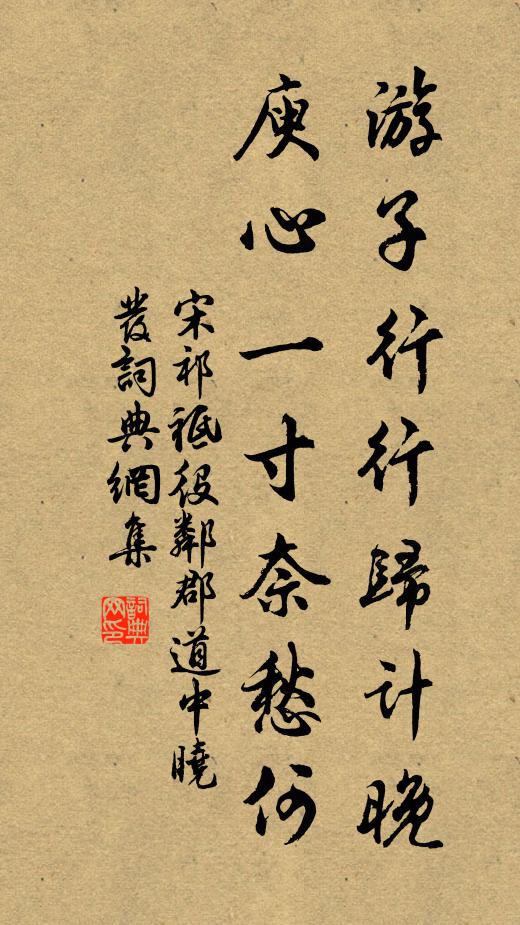 游子行行歸计晚
庾心一寸奈愁何
宋祁祗役鄰郡道中曉
發詞典網集
詞典网印